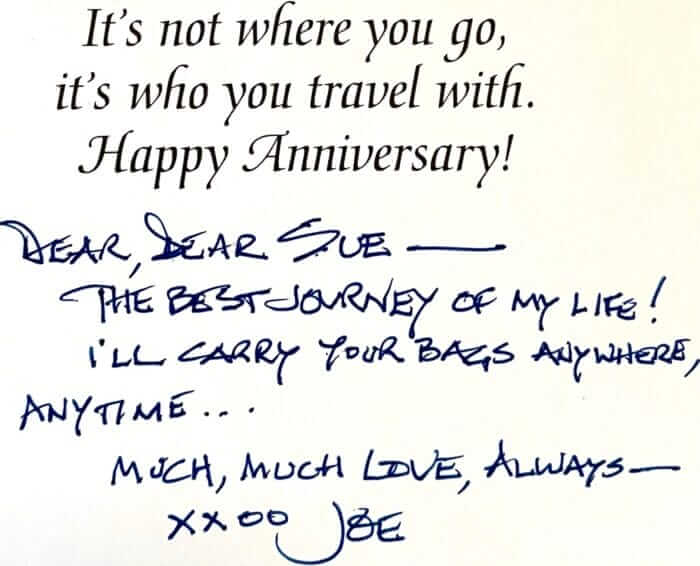 It's not where you go,
it's who you travel with.
Happy Anniversary!
DEAR, DEAR SUE —
THE BEST JOURNEY OF MY LIFE!
I'LL CARRY YOUR BAGS ANYWHERE,
ANYTIME...
MUCH, MUCH LOVE, ALWAYS—
XXOO JOE